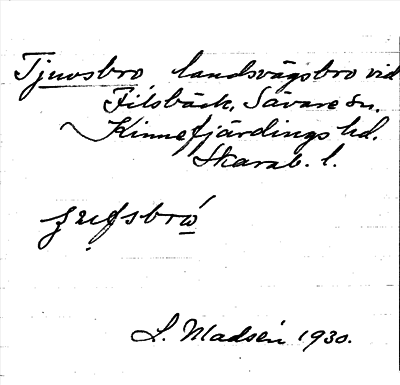 Tjuvsbro, landsvägsbro vid
Filsbäck, Sävare sn.
Kinnefjärdings hd.
Skarab. l.
L. Madsén 1930.